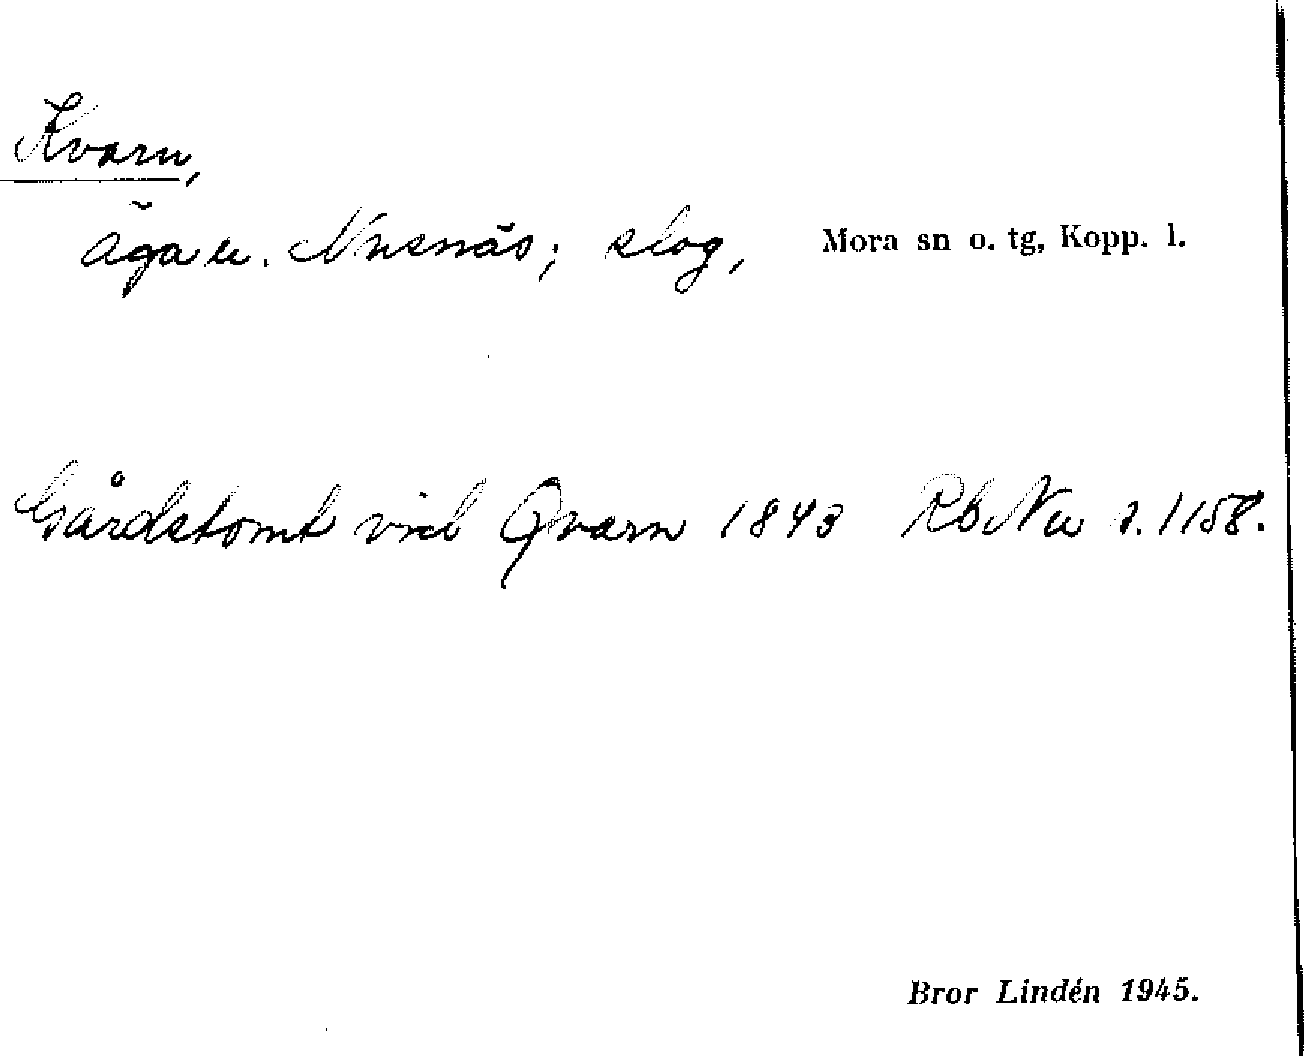 Kvarn,
äga u. Nusnäs; slog, Mora sn o. tg, Kopp. l.
Gårdstomt vid Qvarn 1843 Rb Nu s. 1158.
Bror Lindén 1945.